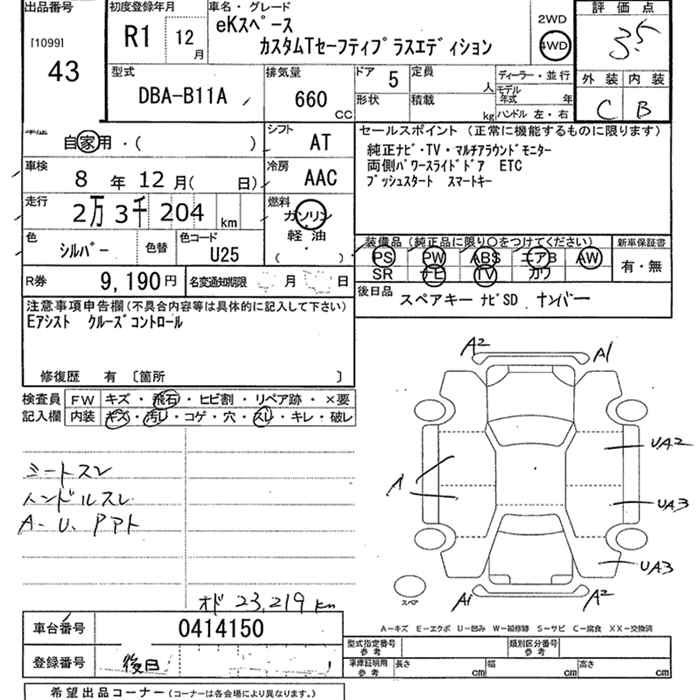 出品番号 初度登録年月 車名・グレード 評価点
[1099] 43
R1 12月
eKスペース
カスタムTセーフティプラスエディション
2WD
4WD
3.5
外装 内装
C B
型式 排気量 ドア 5 定員 人
DBA-B11A 660 CC
形状 積載 kg
ディーラー・並行
モデル年式 年
ハンドル 左・右
車歴 自家用・( )
シフト AT
車検 8年12月( 日)
冷房 AAC
走行 2万3千204km
燃料 ガソリン
軽油
( )
色 シルバー 色替 色コード U25
R券 9,190円 名変通知期限 月 日
セールスポイント (正常に機能するものに限ります)
純正ナビ・TV・マルチアラウンドモニター
両側パワースライドドア ETC
プッシュスタート スマートキー
装備品(純正品に限り○をつけてください) 新車保証書
PS PW ABS エアB AW
SR ナビ TV カワ
有・無
後日品 スペアキー ナビSD ナンバー
注意事項申告欄(不具合内容等は具体的に記入して下さい)
Eアシスト クルーズコントロール
修復歴 有 〔箇所 〕
検査員 FW キズ・飛石・ヒビ割・リペア跡・×要
記入欄 内装 キズ・汚レ・コゲ・穴・スレ・キレ・破レ
シートスレ
ハンドルスレ
A-U、Pアト
オド 23,219km
A2 A1
UA2
A
UA3
UA3
A1 A2
スペア
A-キズ E-エクボ U-凹み W-補修跡 S-サビ C-腐食 XX-交換済
車台番号 0414150
登録番号 後日
型式指定番号 参考 類別区分番号 参考
車庫証明用 参考 長さ cm 幅 cm 高さ cm
希望出品コーナー(コーナーは各会場により異なります。)